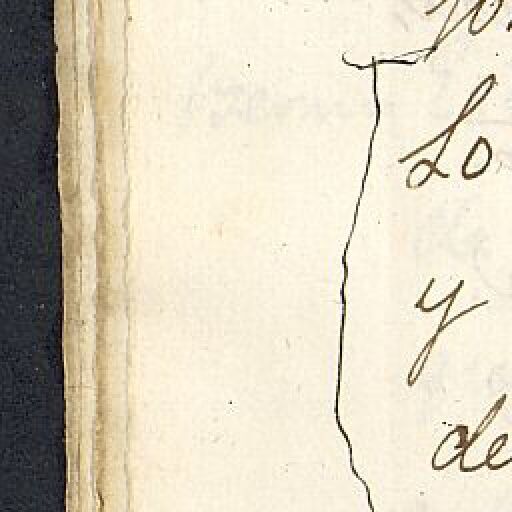 Lo
y
de